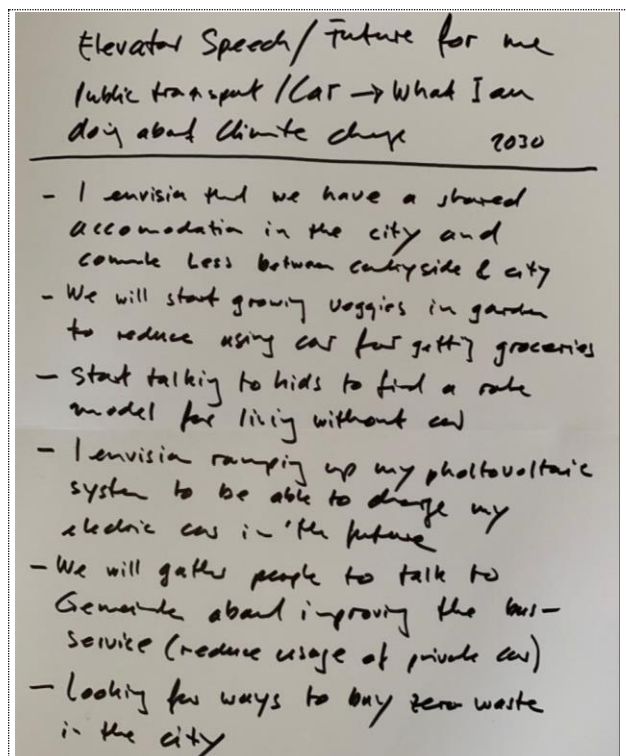 Elevator Speech / Future for me
Public transport / Car → What I am
doing about Climate change 2030
- I envision that we have a shared
accomodation in the city and
commute less between countryside & city
- We will start growing veggies in garden
to reduce using car for getting groceries
- Start talking to kids to find a role
model for living without car
- I envision ramping up my photovoltaic
system to be able to charge my
electric car in the future
- We will gather people to talk to
Gemeinde about improving the bus-
service (reduce usage of private car)
- Looking for ways to buy zero waste
in the city